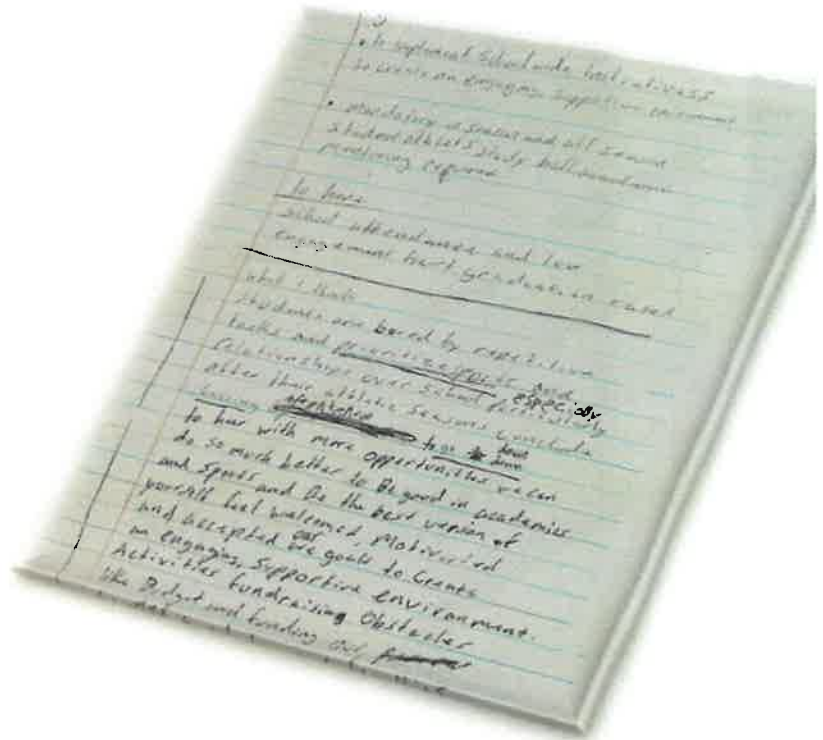 • to implement Schoolwide
to create an engaging, supportive environment
• mandatory in season and off season
student athlets study hall academic
monitoring required
to have
school attendance and low
engagement hurt graduation rates
what I think
Students are bored by repetitive
tasks and prioritize sports and
relationships over School especially
after their athletic seasons conclude
having
to hur with more opportunities we can
do so much better to Be good in academics
and Sports and Be the best version of
yourself feel welcomed, Motivated
and accepted our goals to Create
an engaging, Supportive environment.
Activities fundraising Obstacles
like Budget and funding